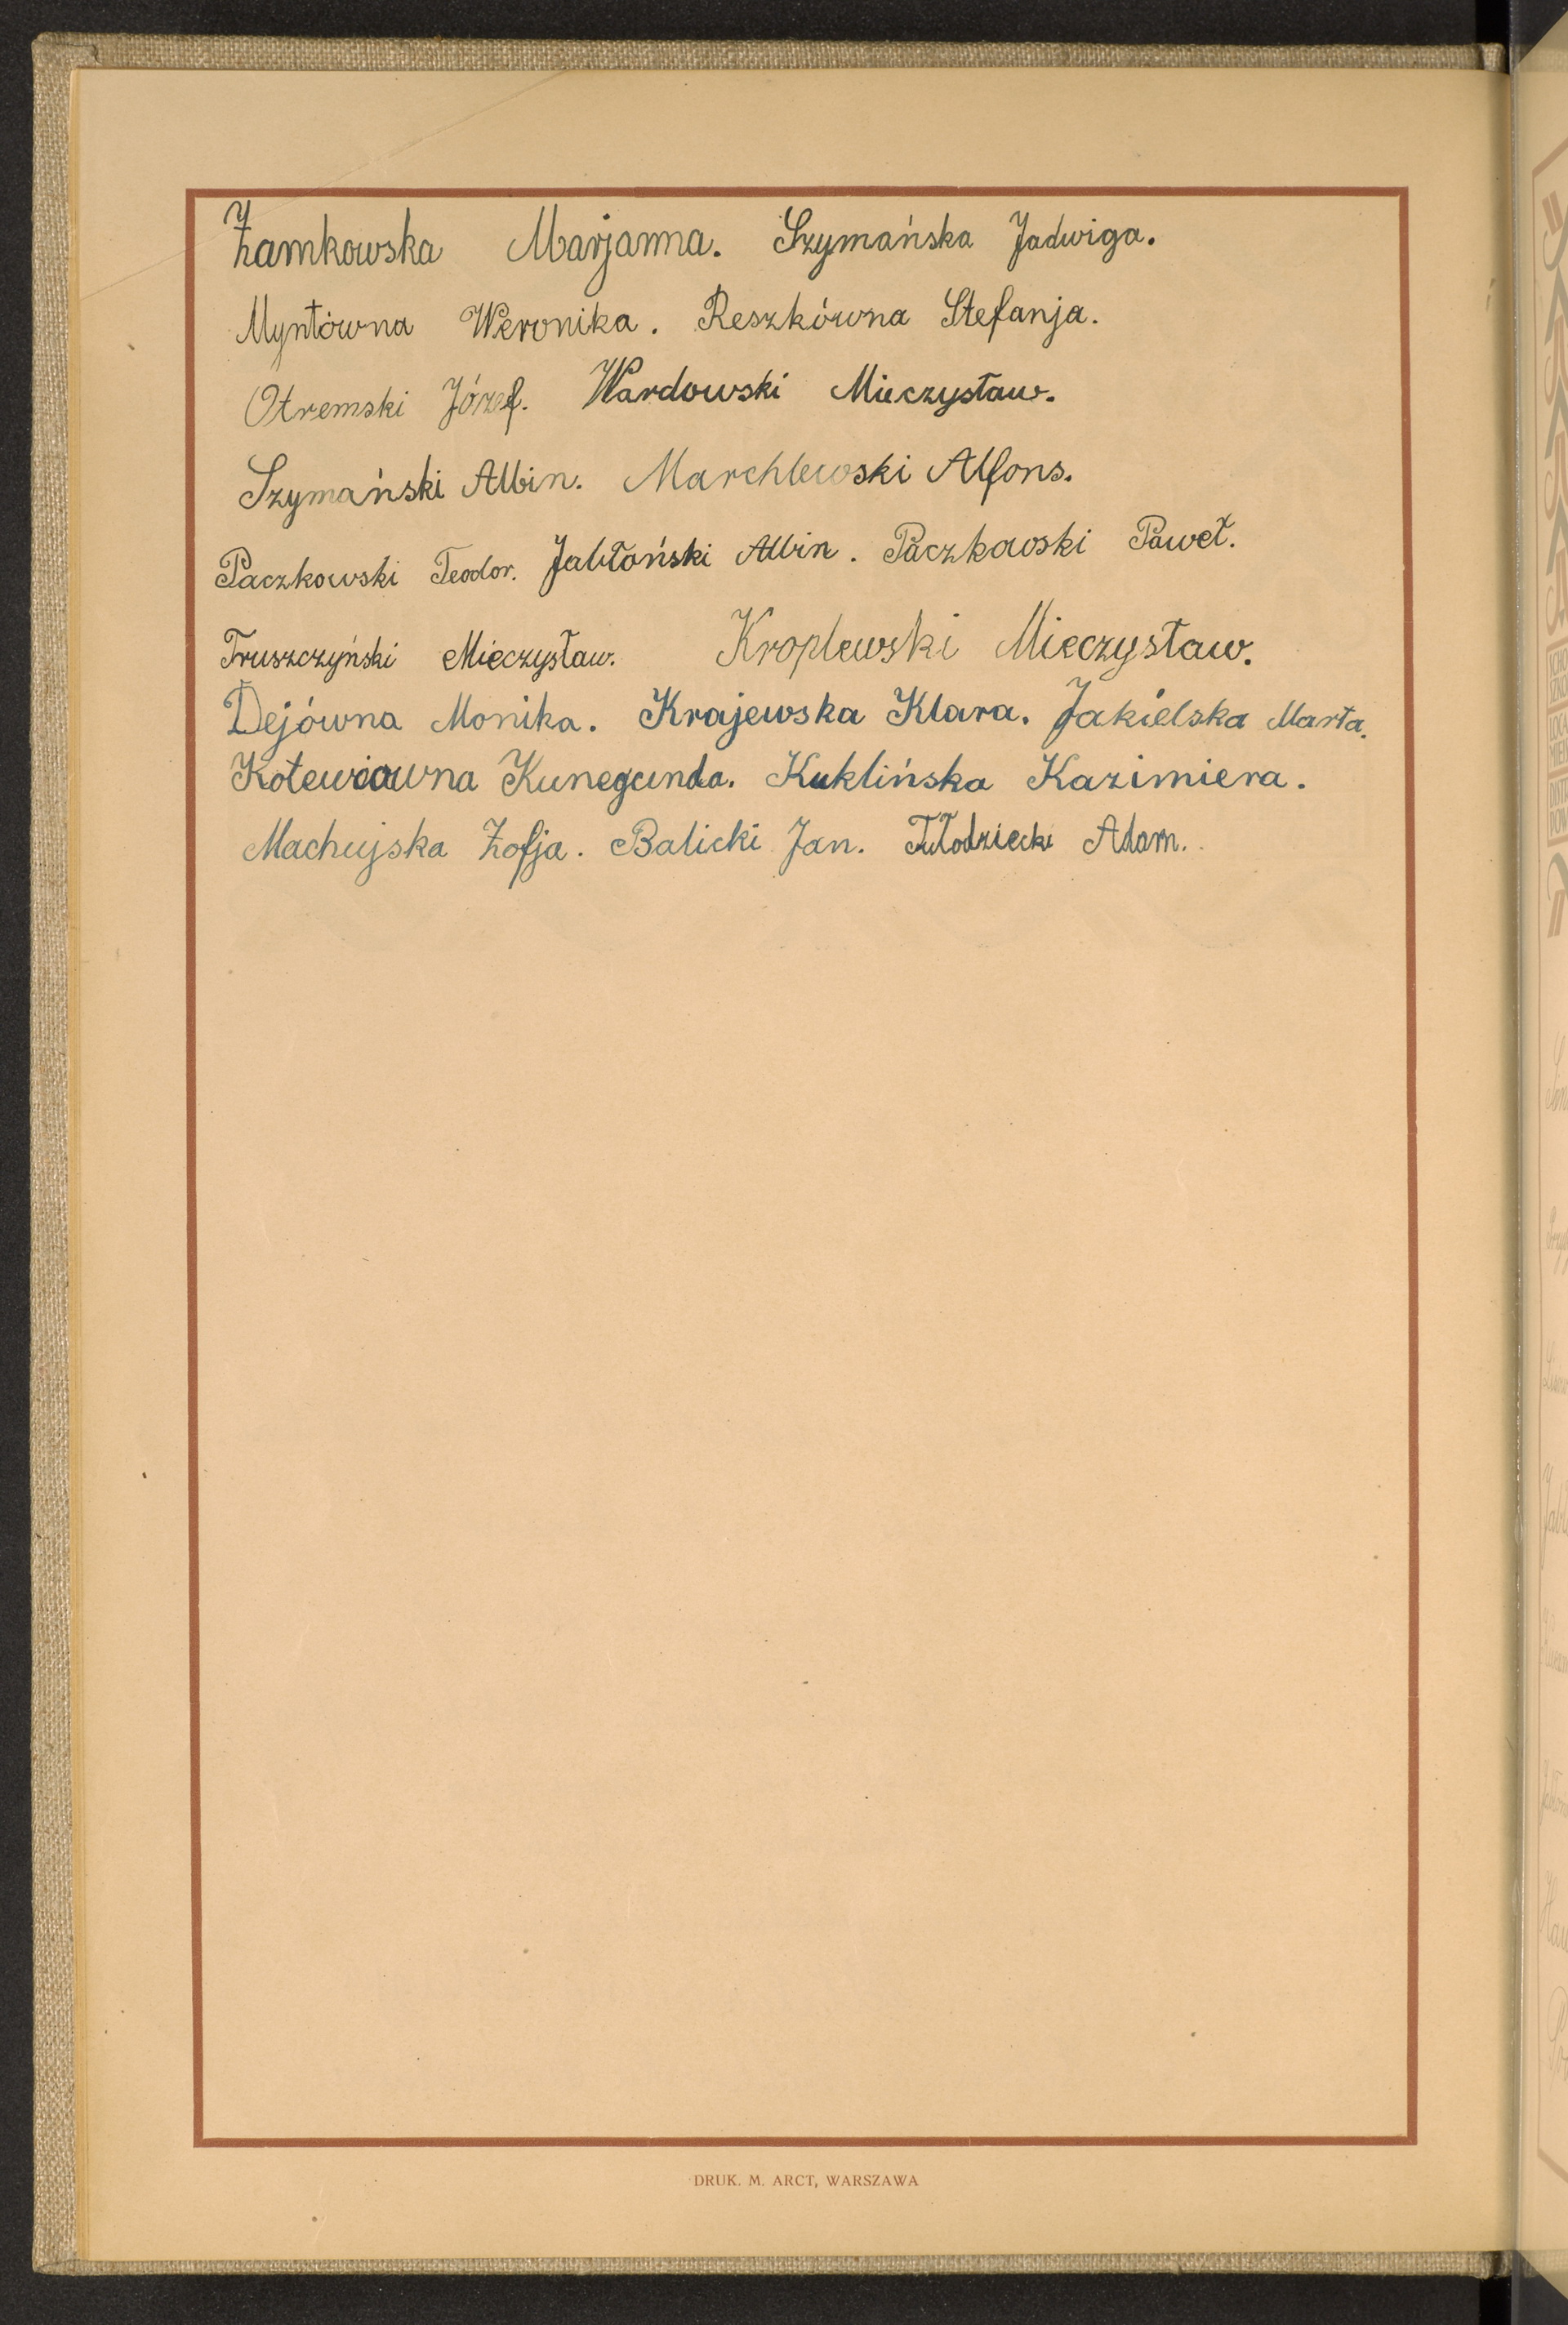 Zamkowska Marjanna. Szymańska Jadwiga.
Myntówna Weronika. Reszkówna Stefanja.
Otremski Józef. Wardowski Mieczysław.
Szymański Albin. Marchlewski Alfons.
Paczkowski Teodor. Jabłoński Albin. Paczkowski Paweł.
Truszczyński Mieczysław. Kroplewski Mieczysław.
Dejówna Monika. Krajewska Klara. Jakielska Marta.
Kunegunda. Kuklińska Kazimiera.
Machujska Zofja. Balicki Jan. Tułodziecki Adam.
DRUK. M. ARCT, WARSZAWA